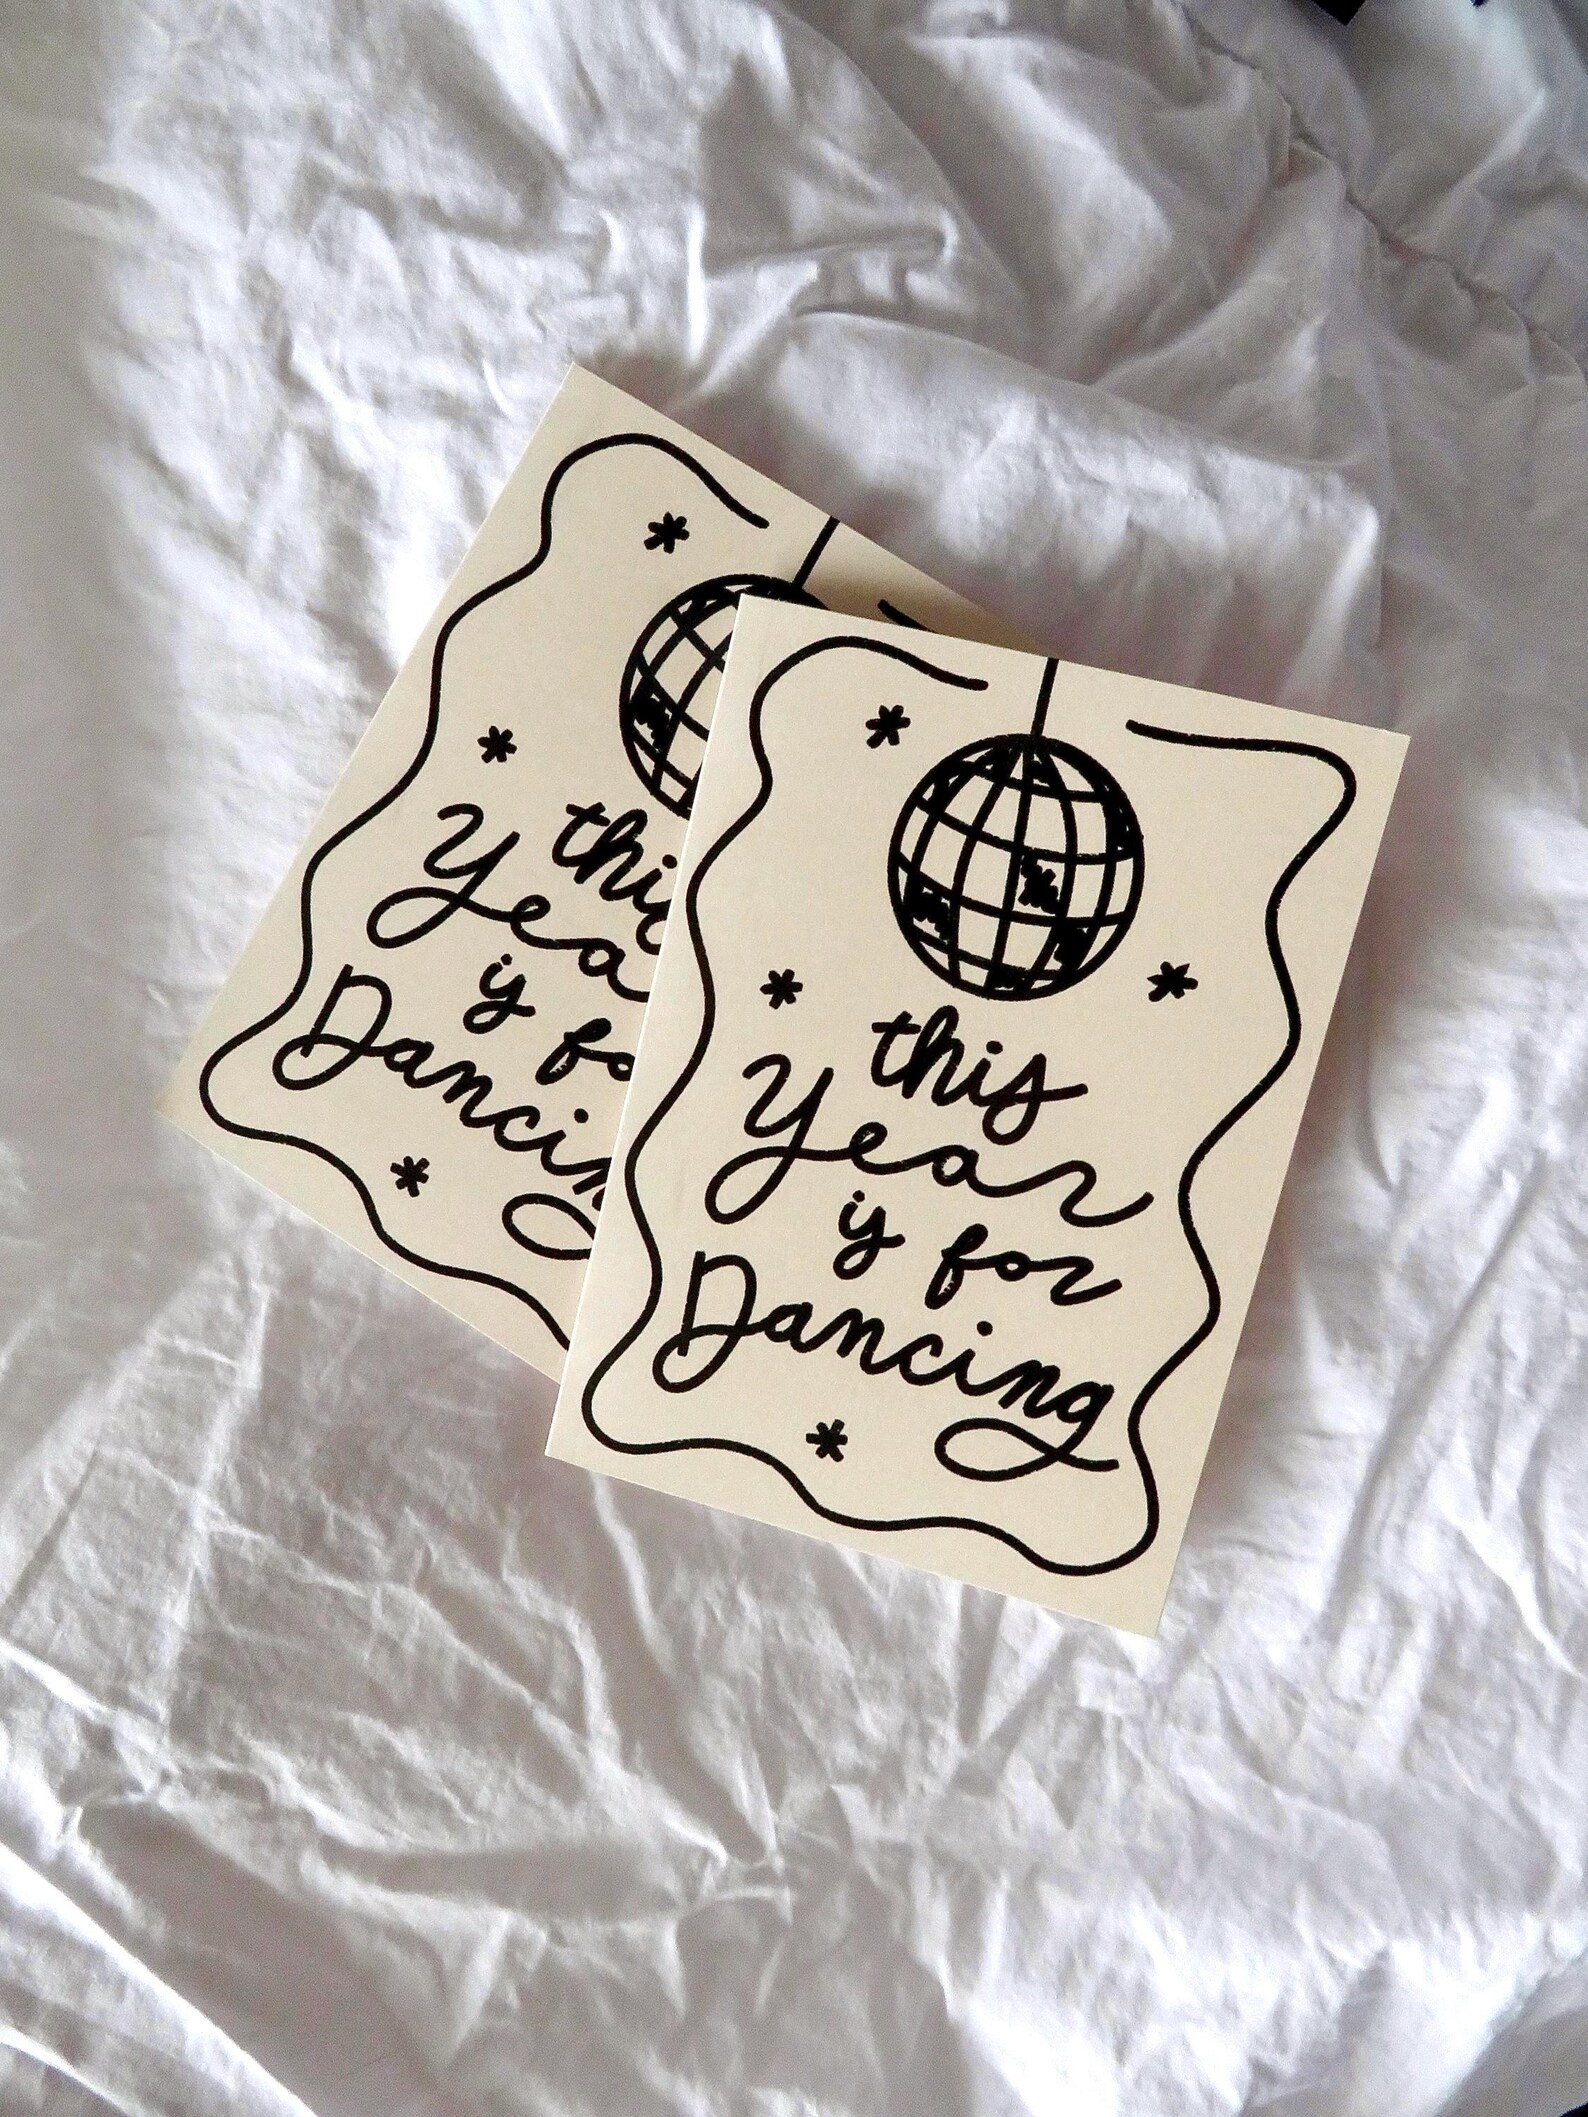 this
Year
is for
Dancing
this
Yea
is fo
Dancin